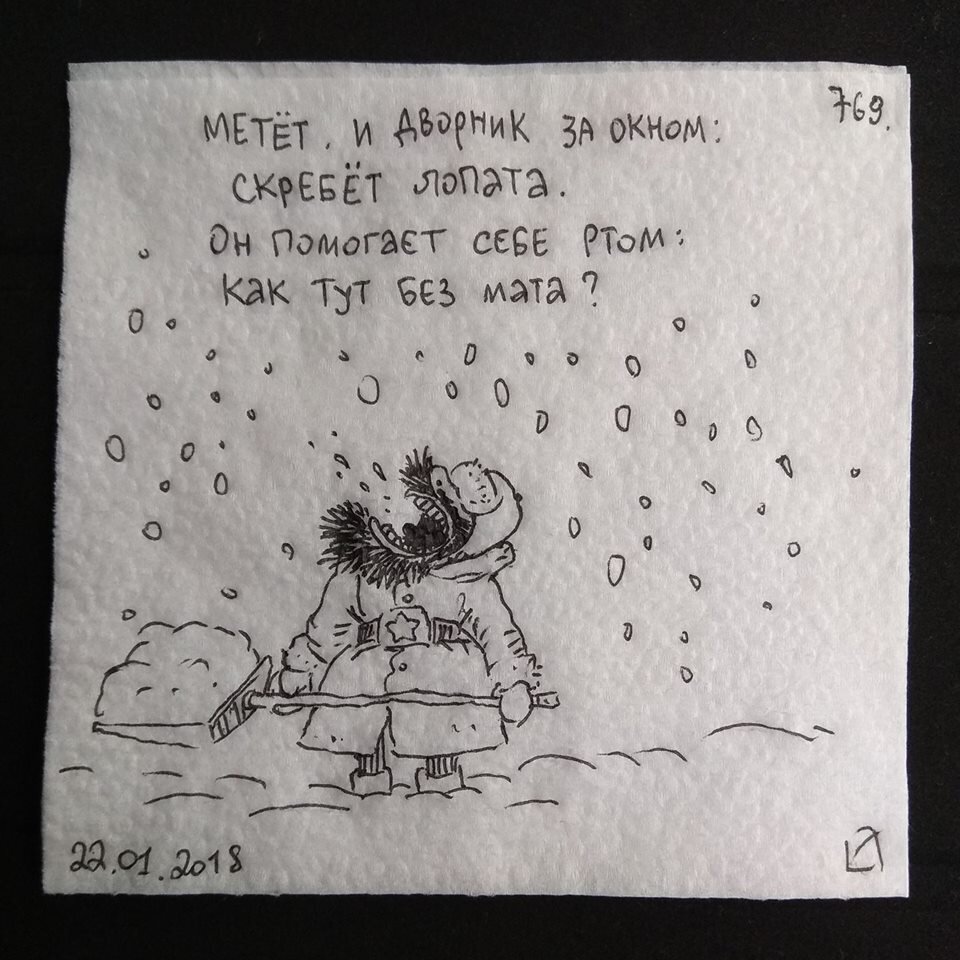 769.
МЕТЁТ. И ДВОРНИК ЗА ОКНОМ:
СКРЕБЁТ ЛОПАТА.
ОН ПОМОГАЕТ СЕБЕ РТОМ:
КАК ТУТ БЕЗ МАТА?
22.01.2018